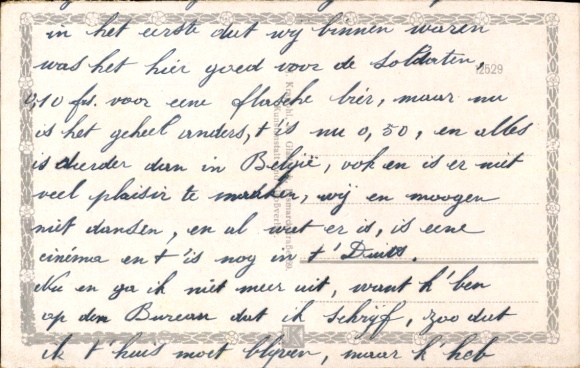 in het eerste dat wy binnen waren
was het hier goed voor de soldaten,
12529
0,10 fs. voor eene flassche bier, maar nu
is het geheel anders, t is nu 0,50, en alles
is dierder dan in België, ook en is er niet
veel plaisir te maeken, wij en moogen
niet dansen, en al wat er is, is eene
cinéma en t' is nog in t' Duits.
Nu en ga ik niet meer uit, want k' ben
op den Bureau dat ik schrijf, zoo dat
ik t' huis moet blijven, maar k' heb